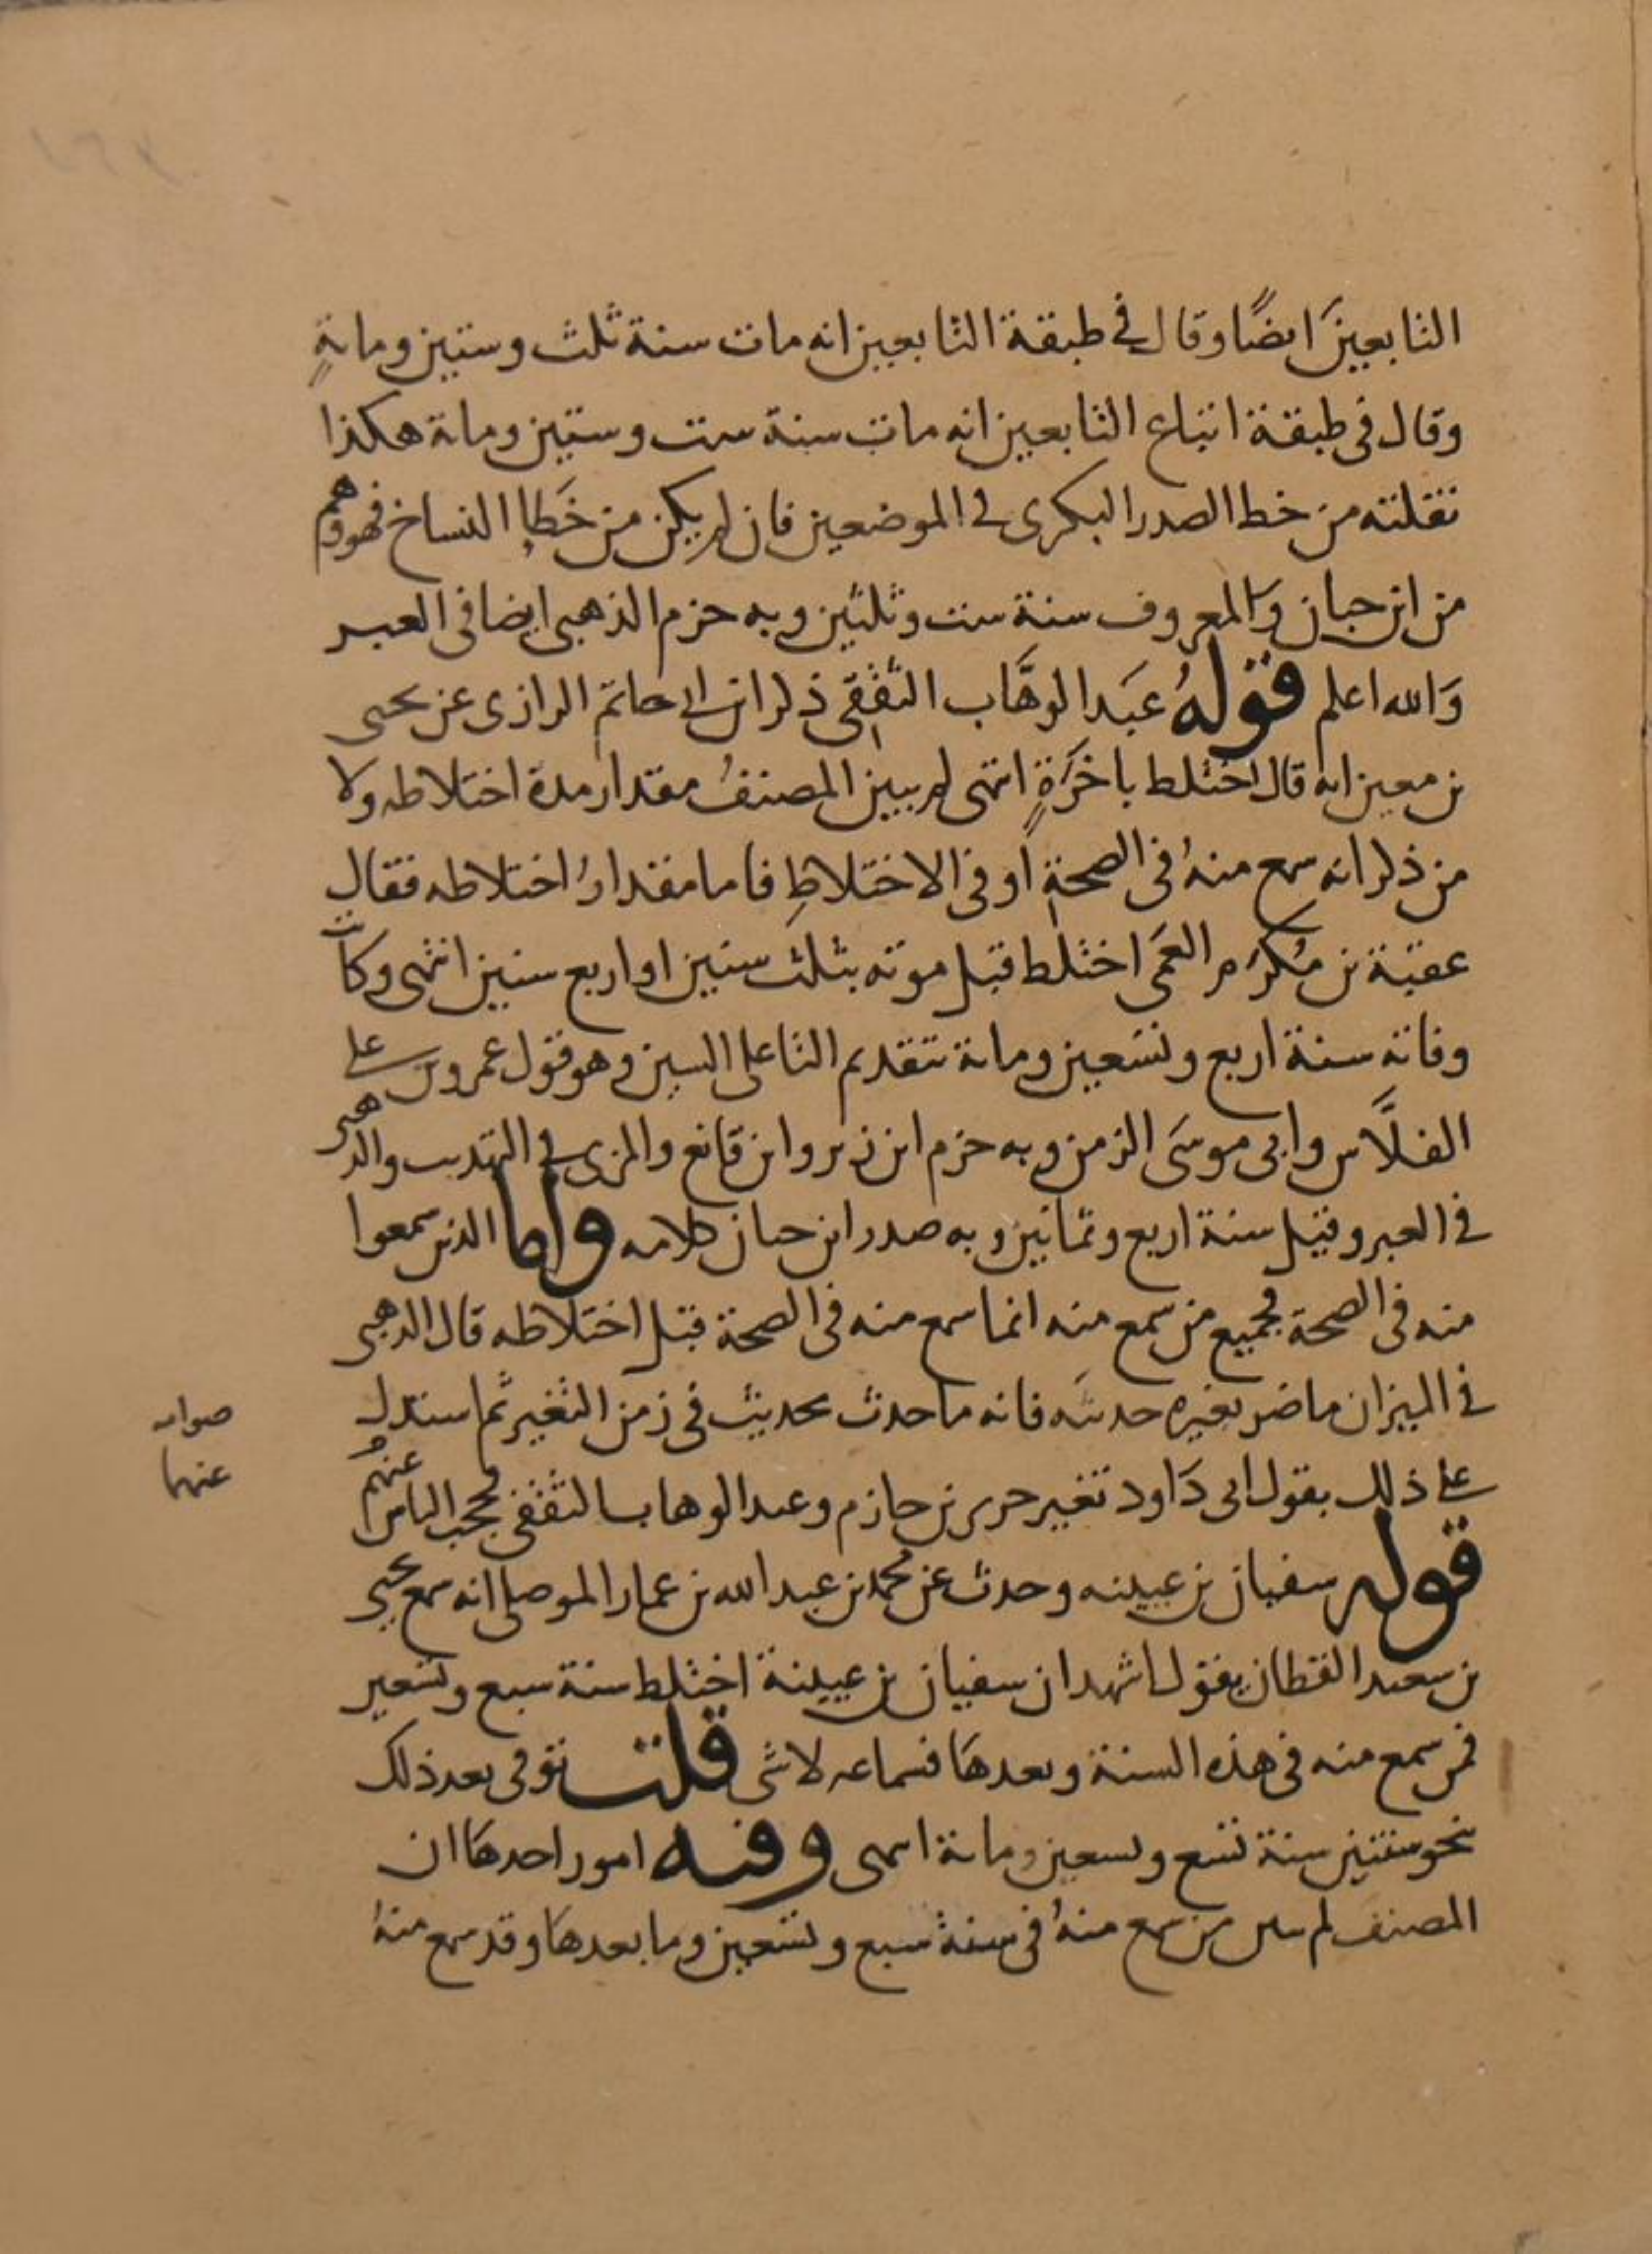 التابعينَ ايضًا وقال في طبقة التابعين انه مات سنة ثلث وستين ومائةٍ
وقال في طبقة اتباع التابعين انه مات سنة ست وستين ومائة هكذا
نقلته من خط الصدر البكرى في الموضعين فان لم يكن من خَطإ النساخ فهو وهم
من ابن حبان والمعروف سنة ست وثلثين وبه جزم الذهبى ايضا في العبر
وَالله اعلم قولهُ عبَد الوهَّاب الثقفى ذكر ابن ابى حاتم الرازى عن يحيى
بن معين انه قال اختلط باخَرَةٍ انتهى لم يبين المصنفُ مقدار مدة اختلاطه ولا
من ذكر انه سمع منهُ في الصحةِ او في الاختلاطِ فاما مقدارُ اختلاطه فقال
عقبة بن مُكرَم العَمِّى اختلط قبل موته بثلث سنين او اربع سنين انتهى وكانت
وفاته سنة اربع وتسعين ومائة بتقديم التا على السين وهو قول عمرو بن على
الفلَّاس وابى موسَى الزمن وبه جزم ابن زبر وابن قانع والمزى في التهذيب والذهبى
في العبر وقيل سنة اربع وثمانين وبه صدر ابن حبان كلامه واما الذين سمعوا
منه في الصحة فجميع من سمع منه انما سمع منه في الصحة قبل اختلاطه قال الذهبى
في الميزان ما ضر تغيره حديثَه فانه ما حدث بحديث في زمن التغير ثم استدل
على ذلك بقول ابى دَاود تغير جرير بن حازم وعبد الوهاب الثقفى فحجب الناس عنهم
صوابه
عنهما
قوله سفيان بن عيينه وحدث عن محمد بن عبد الله بن عمار الموصلى انه سمع يحيى
بن سعيد القطان يقول اشهد ان سفيان بن عيينة اختلط سنة سبع وتسعين
فمن سمع منه في هذه السنة وبعدهَا فسماعه لا شى قلت توفى بعد ذلك
بنحو سنتين سنة تسع وتسعين ومائة انتهى وفيه امور احدهَا ان
المصنف لم يبين من سمع منهُ في سنة سبع وتسعين وما بعدهَا وقد سمع منهُ